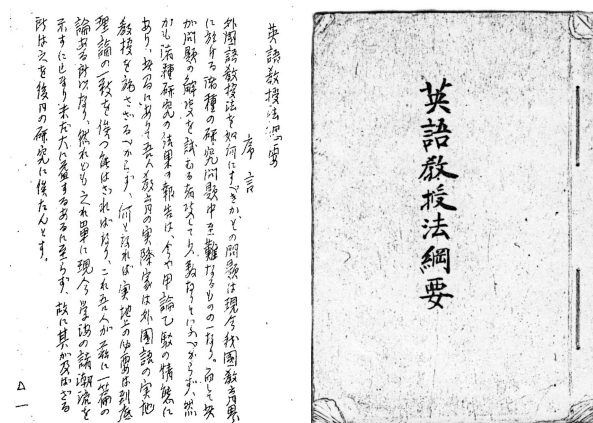 英語教授法綱要
英語教授法綱要
序言
外国語教授法を如何にすべきか、その問題は現今我国教育界
に於ける諸種の研究問題中至難なるものの一なり。而して
が問題の解決を試むる者決して少数なりといふべからず、然
かも諸種研究の結果の報告は、今や甲論乙駁の情態に
あり、此間にありて吾人教育の実際家は外国語の実地
教授を施さざるべからず、何となれば実地上の必要は到底
理論の一致を俟つ能はざればなり、これ吾人が茲に一篇の
論ある所以なり、然れどもこれ単に現今学海の諸潮流を
示すに止まり未だ大に尽すあるに至らず、故に其が及ばざる
所は之を後日の研究に俟たんとす。